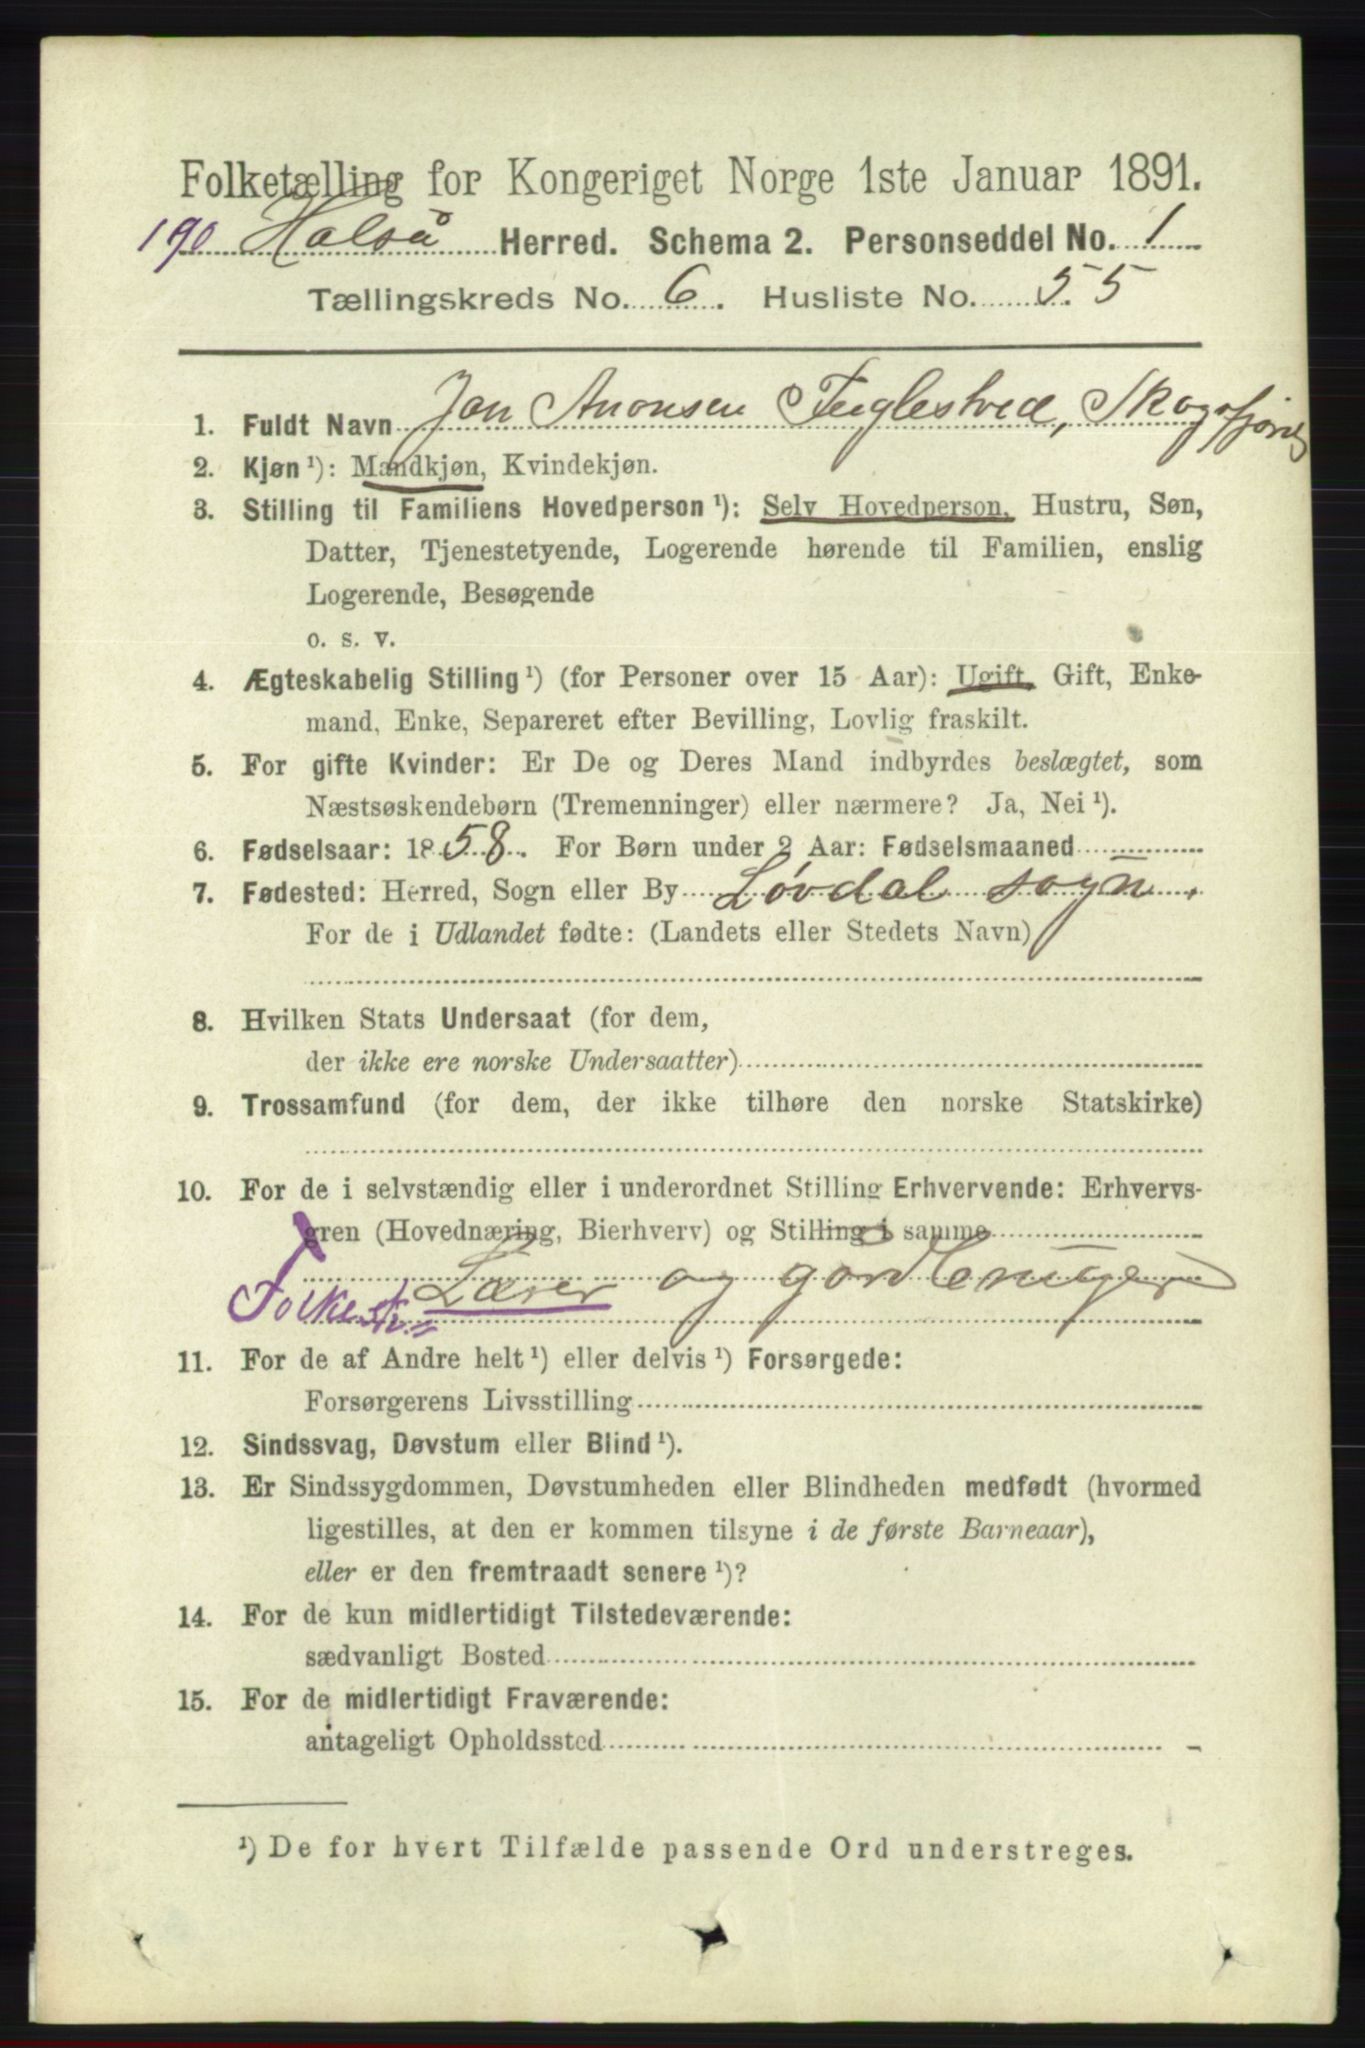 Folketælling for Kongeriget Norge 1ste Januar 1891.
190 Halså Herred. Schema 2. Personseddel No. 1
Tællingskreds No. 6. Husliste No. 55
1. Fuldt Navn Jon Anonsen Fuglestved, Skogsfjord
2. Kjøn ¹): Mandkjøn, Kvindekjøn.
3. Stilling til Familiens Hovedperson ¹): Selv Hovedperson, Hustru, Søn,
Datter, Tjenestetyende, Logerende hørende til Familien, enslig
Logerende, Besøgende
o. s. v.
4. Ægteskabelig Stilling ¹) (for Personer over 15 Aar): Ugift, Gift, Enke-
mand, Enke, Separeret efter Bevilling, Lovlig fraskilt.
5. For gifte Kvinder: Er De og Deres Mand indbyrdes beslægtet, som
Næstsøskendebørn (Tremenninger) eller nærmere? Ja, Nei ¹).
6. Fødselsaar: 1858. For Børn under 2 Aar: Fødselsmaaned
7. Fødested: Herred, Sogn eller By Løvdal sogn.
For de i Udlandet fødte: (Landets eller Stedets Navn)
8. Hvilken Stats Undersaat (for dem,
der ikke ere norske Undersaatter)
9. Trossamfund (for dem, der ikke tilhøre den norske Statskirke)
10. For de i selvstændig eller i underordnet Stilling Erhvervende: Erhvervs-
gren (Hovednæring, Bierhverv) og Stilling i samme
Folkesk.= Lærer og gårdbruger
11. For de af Andre helt ¹) eller delvis ¹) Forsørgede:
Forsørgerens Livsstilling
12. Sindssvag, Døvstum eller Blind ¹).
13. Er Sindssygdommen, Døvstumheden eller Blindheden medfødt (hvormed
ligestilles, at den er kommen tilsyne i de første Barneaar),
eller er den fremtraadt senere ¹)?
14. For de kun midlertidigt Tilstedeværende:
sædvanligt Bosted
15. For de midlertidigt Fraværende:
antageligt Opholdssted
¹) De for hvert Tilfælde passende Ord understreges.